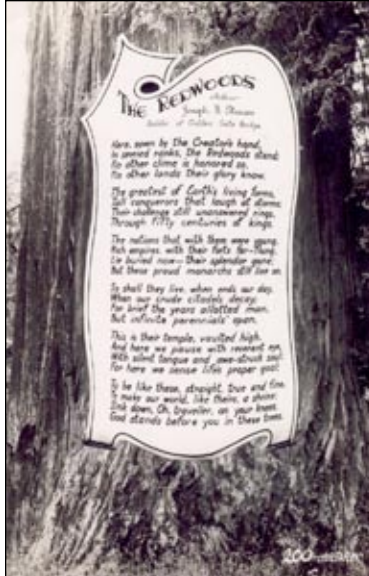 THE REDWOODS
Joseph B. Strauss
Builder of Golden Gate Bridge
Here, sown by the Creator's hand,
In serried ranks, the Redwoods stand:
No other clime is honored so,
No other lands their glory know.
The greatest of Earth's living forms,
Tall conquerors that laugh at storms;
Their challenge still unanswered rings,
Through fifty centuries of kings.
The nations that with them were young,
Rich empires, with their forts far-flung,
Lie buried now—their splendor gone;
But these proud monarchs still live on.
So shall they live, when ends our day,
When our crude citadels decay;
For brief the years allotted man,
But infinite perennials' span.
This is their temple, vaulted high,
And here we pause with reverent eye,
With silent tongue and awe-struck soul;
For here we sense life's proper goal:
To be like these, straight, true and fine,
To make our world, like theirs, a shrine;
Sink down, Oh, traveller, on your knees,
God stands before you in these trees.
200